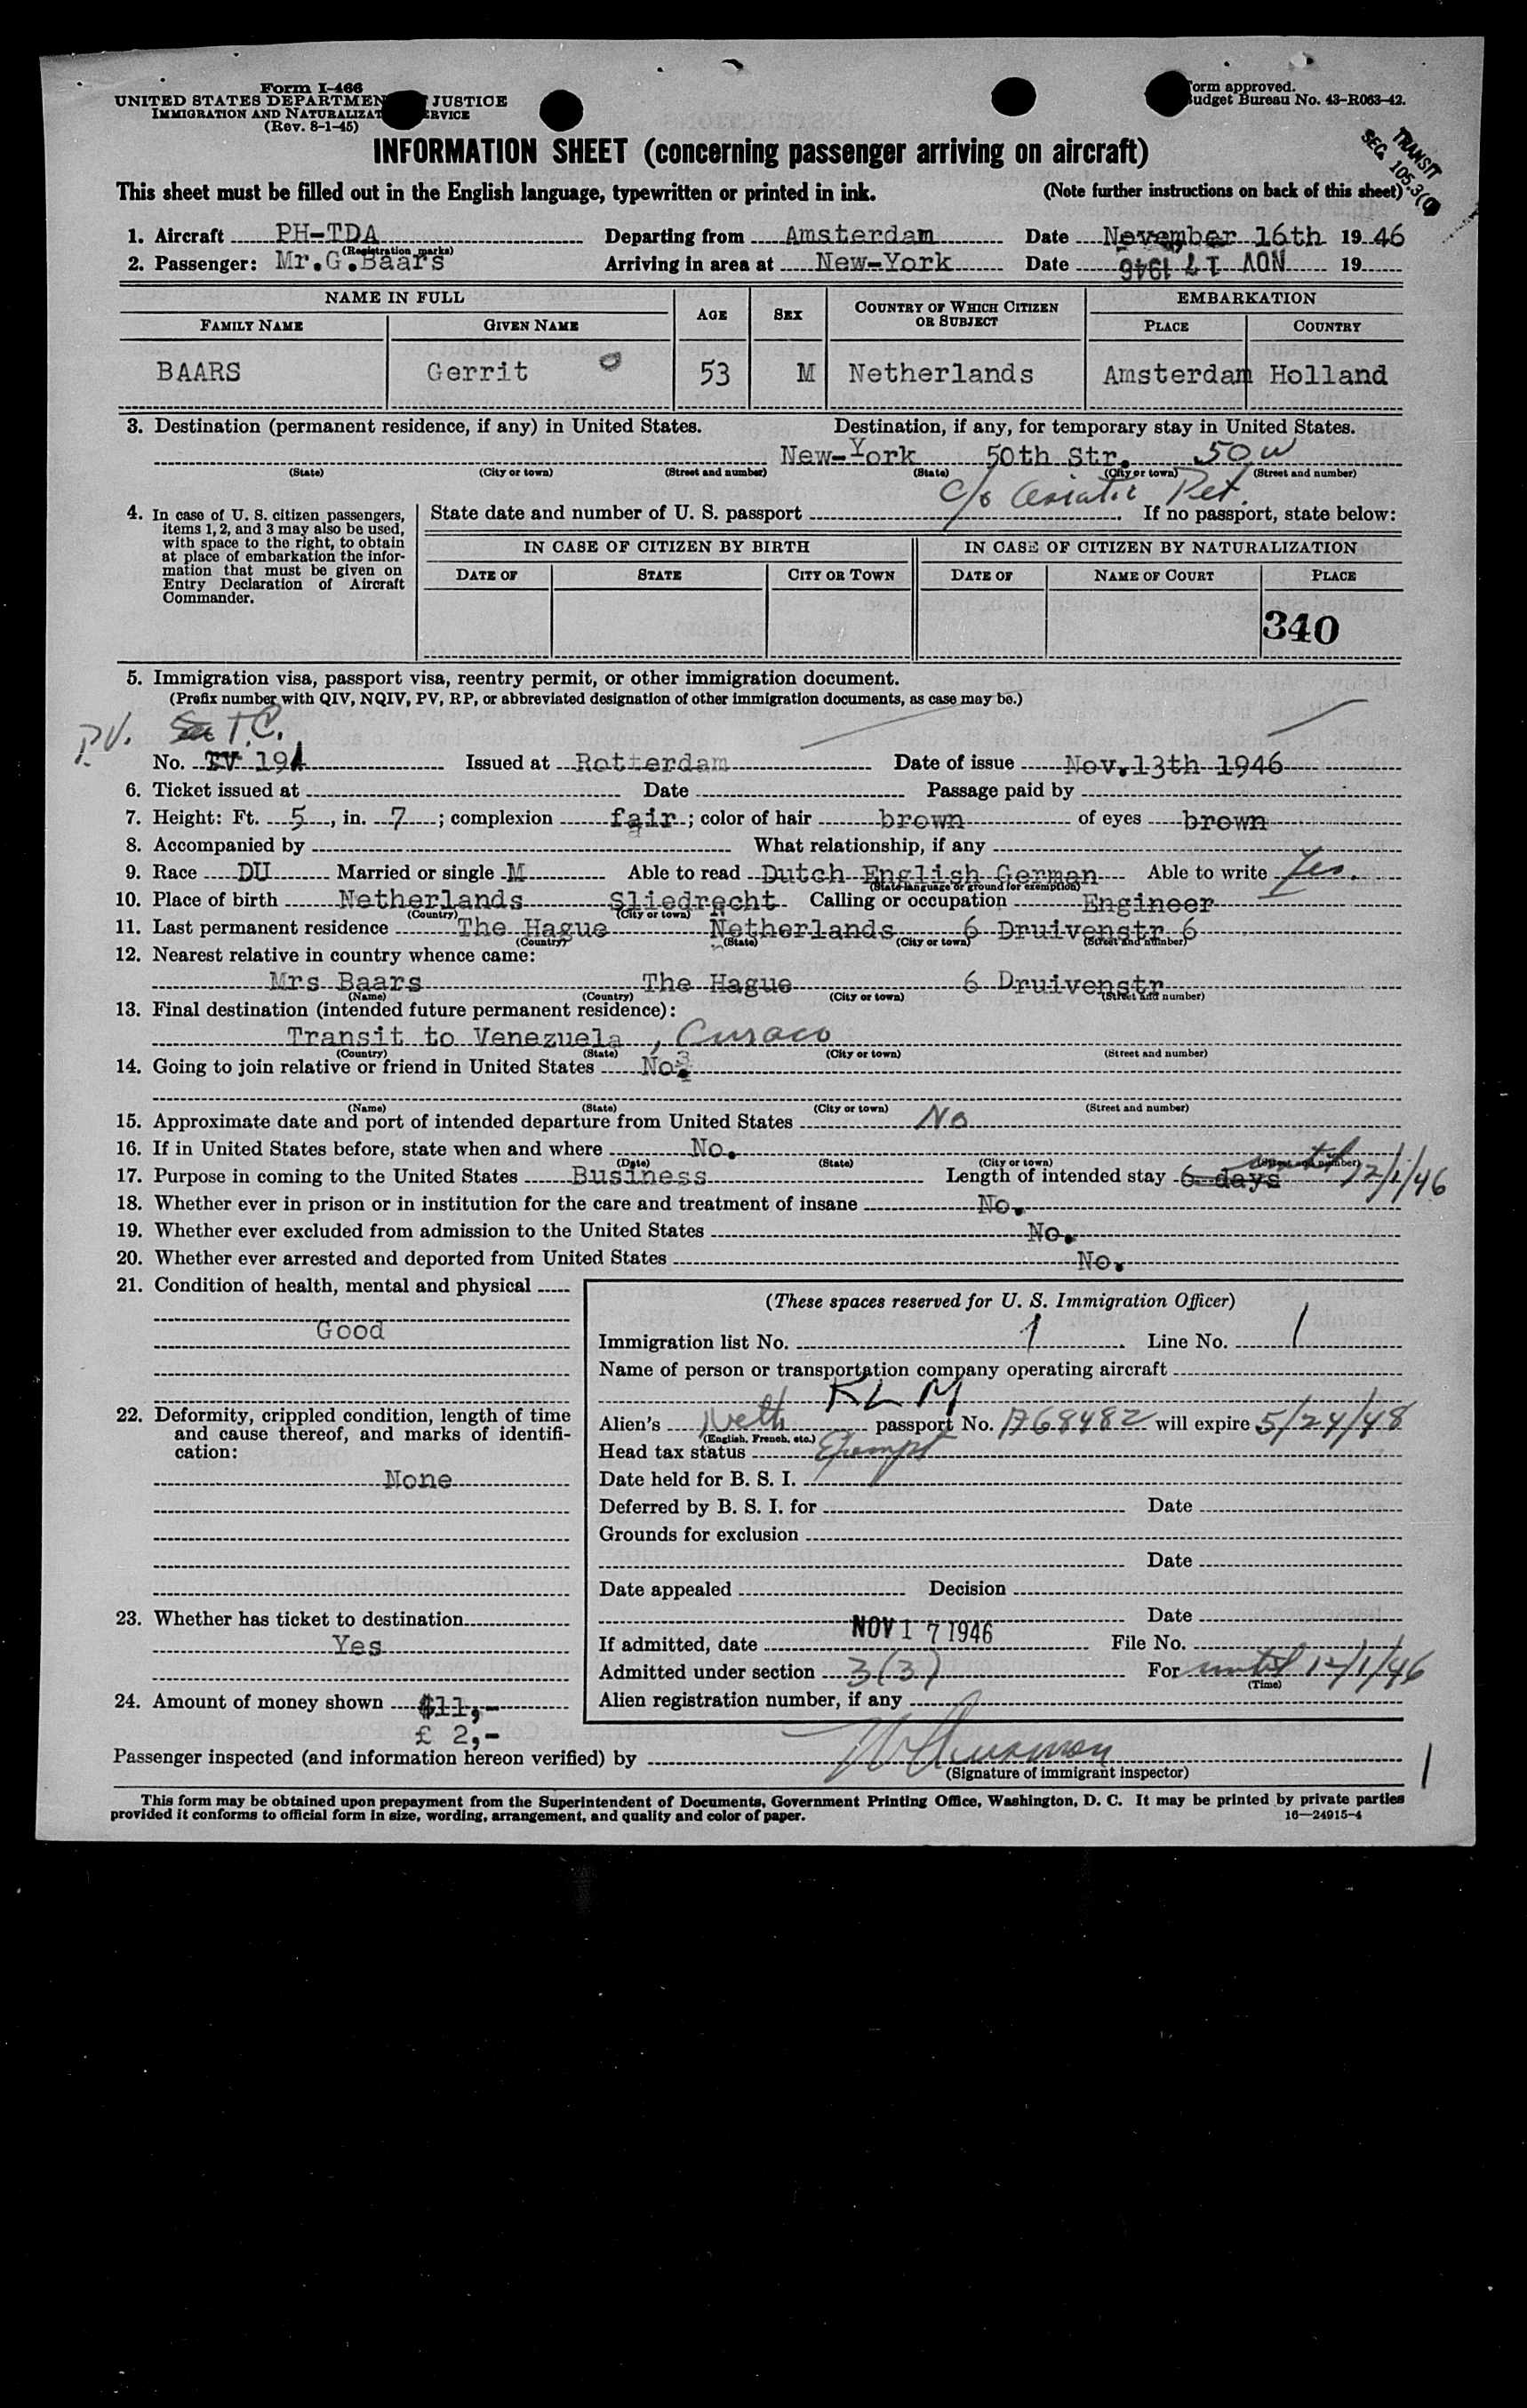 Form I-466
UNITED STATES DEPARTMEN JUSTICE
IMMIGRATION AND NATURALIZAT ERVICE
(Rev. 8-1-45)
orm approved.
udget Bureau No. 43-R063-42.
TRANSIT
SEC. 105.3(
INFORMATION SHEET (concerning passenger arriving on aircraft)
This sheet must be filled out in the English language, typewritten or printed in ink. (Note further instructions on back of this sheet)
1. Aircraft PH-TDA Departing from Amsterdam Date November 16th 19 46
(Registration marks)
2. Passenger: Mr.G.Baars Arriving in area at New-York Date NOV 17 1946 19
NAME IN FULL AGE SEX COUNTRY OF WHICH CITIZEN OR SUBJECT EMBARKATION
FAMILY NAME GIVEN NAME PLACE COUNTRY
BAARS Gerrit 53 M Netherlands Amsterdam Holland
3. Destination (permanent residence, if any) in United States. Destination, if any, for temporary stay in United States.
New-York 50th Str. 50 W
(State) (City or town) (Street and number) (State) (City or town) (Street and number)
c/o Asiatic Pet.
4. In case of U. S. citizen passengers, items 1, 2, and 3 may also be used, with space to the right, to obtain at place of embarkation the information that must be given on Entry Declaration of Aircraft Commander.
State date and number of U. S. passport . If no passport, state below:
IN CASE OF CITIZEN BY BIRTH IN CASE OF CITIZEN BY NATURALIZATION
DATE OF STATE CITY OR TOWN DATE OF NAME OF COURT PLACE
340
5. Immigration visa, passport visa, reentry permit, or other immigration document.
(Prefix number with QIV, NQIV, PV, RP, or abbreviated designation of other immigration documents, as case may be.)
P.V. T.C.
No. TV 191 Issued at Rotterdam Date of issue Nov.13th 1946
6. Ticket issued at Date Passage paid by
7. Height: Ft. 5, in. 7; complexion fair; color of hair brown of eyes brown
8. Accompanied by What relationship, if any
9. Race DU Married or single M Able to read Dutch English German Able to write Yes.
(State language or ground for exemption)
10. Place of birth Netherlands Sliedrecht Calling or occupation Engineer
(Country) (City or town)
11. Last permanent residence The Hague Netherlands 6 Druivenstr 6
(Country) (State) (City or town) (Street and number)
12. Nearest relative in country whence came:
Mrs Baars The Hague 6 Druivenstr
(Name) (Country) (City or town) (Street and number)
13. Final destination (intended future permanent residence):
Transit to Venezuela, Curaco
(Country) (State) (City or town) (Street and number)
14. Going to join relative or friend in United States No.
(Name) (State) (City or town) (Street and number)
15. Approximate date and port of intended departure from United States No
16. If in United States before, state when and where No.
(Date) (State) (City or town) (Street and number)
17. Purpose in coming to the United States Business Length of intended stay 6 days until 12/1/46
18. Whether ever in prison or in institution for the care and treatment of insane No.
19. Whether ever excluded from admission to the United States No.
20. Whether ever arrested and deported from United States No.
21. Condition of health, mental and physical
Good
22. Deformity, crippled condition, length of time and cause thereof, and marks of identification:
None
23. Whether has ticket to destination
Yes
24. Amount of money shown $11,-
£ 2,-
(These spaces reserved for U. S. Immigration Officer)
Immigration list No. 1 Line No. 1
Name of person or transportation company operating aircraft
KLM
Alien's Neth passport No. A68482 will expire 5/24/48
(English, French, etc.)
Head tax status Exempt
Date held for B. S. I.
Deferred by B. S. I. for Date
Grounds for exclusion
Date
Date appealed Decision
Date
If admitted, date NOV 17 1946 File No.
Admitted under section 3(3) For until 12/1/46
(Time)
Alien registration number, if any
Passenger inspected (and information hereon verified) by
(Signature of immigrant inspector)
1
This form may be obtained upon prepayment from the Superintendent of Documents, Government Printing Office, Washington, D. C. It may be printed by private parties
provided it conforms to official form in size, wording, arrangement, and quality and color of paper. 16—24915-4